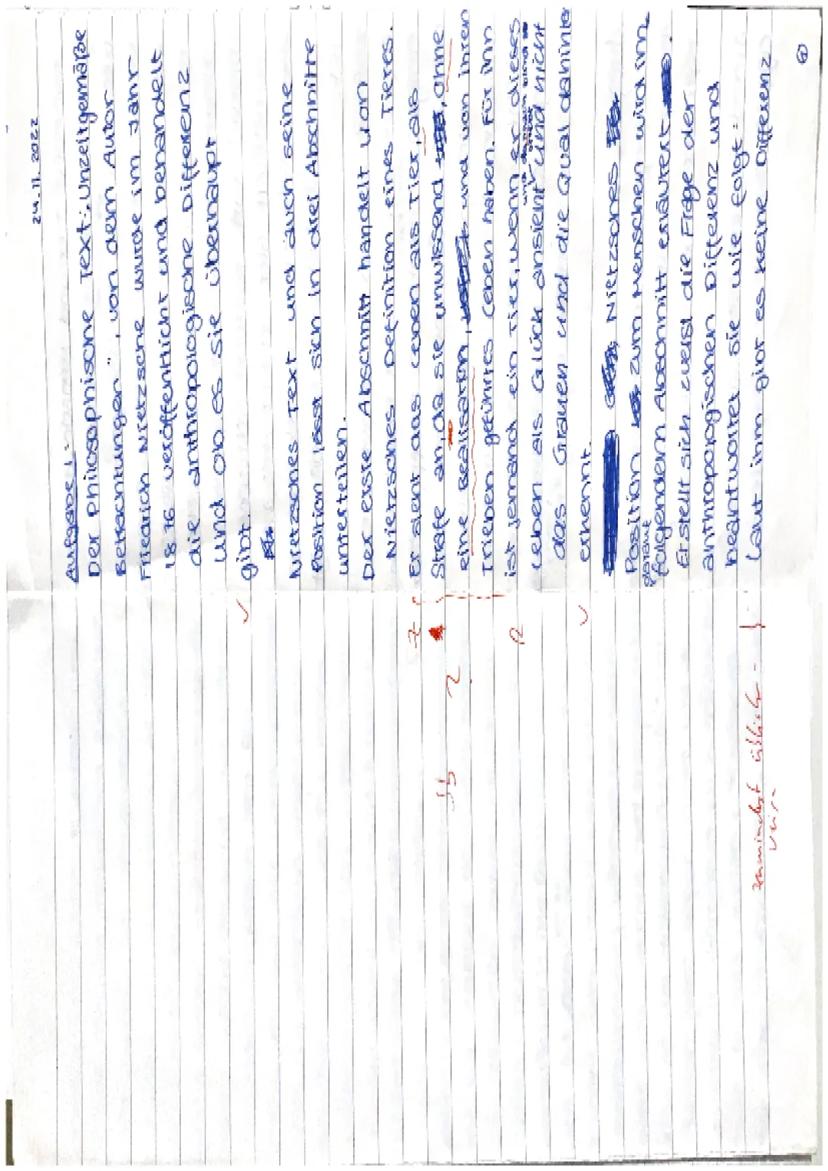 24.11.2022
Aufgabe 1:
Der philosophische Text: „Unzeitgemäße
Betrachtungen", von dem Autor
Friedrich Nietzsche wurde im Jahr
1876 veröffentlicht und behandelt
die anthropologische Differenz
und ob es sie überhaupt
gibt.
Nietzsches Text und auch seine
Position lässt sich in drei Abschnitte
unterteilen.
Der erste Abschnitt handelt von
Nietzsches Definition eines Tieres.
Er sieht das Leben als Tier, als
Strafe an, da sie unwissend, ohne
eine Realisation, und von ihren
Trieben geführtes Leben haben. Für ihn
ist jemand ein Tier, wenn er dieses
Leben als Glück ansieht und nicht
das Grauen und die Qual dahinter
erkennt.
Nietzsches
Position zum Menschen wird im
folgendem Abschnitt erläutert.
Er stellt sich zuerst die Frage der
anthropologischen Differenz und
beantwortet sie wie folgt:
Laut ihm gibt es keine Differenz
zumindest üblicher-
weise
①